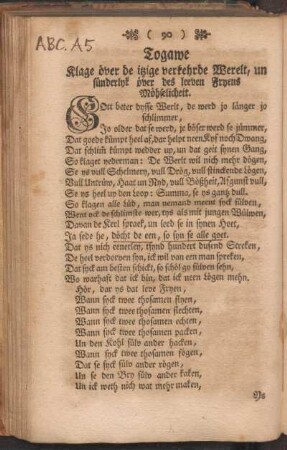 ABC. A5
( 90 )
Togawe
Klage över de itzige verkehrde Werelt, un
sünderlyk över des leeven Fryens
Möhselicheit.
Gott beter dysse Werlt, de werd jo länger jo
schlimmer,
Jo older dat se werd, je böser werd se jümmer,
Dat goede kümpt heel af, dar helpt neen Kyf noch Dwang,
Dat schlimst kümpt wedder up, un dat geit synen Gang,
So klaget yederman: De Werlt wil nich mehr dögen,
Se ys vull Schelmery, vull Drög, vull stinckende Lögen,
Vull Untrüw, Haat un Nyd, vull Bößheit, Afgunst vull,
Se ys heel up den loop: Summa, se ys gantz dull.
So klagen alle tüd, man nemand meent syck sülven,
Went ock de schlimste wer, tys als mit jungen Wülven,
Davan de Kerl sprack, un leed se in synen Hoet,
Ja sede he, döcht de een, so syn se alle goet.
Dat ys nich eenerley, tsynd hundert dusend Streken,
De heel verdorven syn, ick wil van een man spreken,
Dat syck am besten schickt, so schöl gy sülven sehn,
Wo warhaft dat ick bin, dat ick neen lögen mehn.
Hör, dar ys dat leve Fryen,
Wann syck twee thosamen flyen,
Wann syck twee thosamen flechten,
Wann syck twee thosamen echten,
Wann syck twee thosamen packen,
Un den Kohl sülv ander hacken,
Wann syck twee thosamen fögen,
Dat se syck sülv ander rögen,
Un se den Bry sülv ander kaken,
Un ick weth nich wat mehr maken,